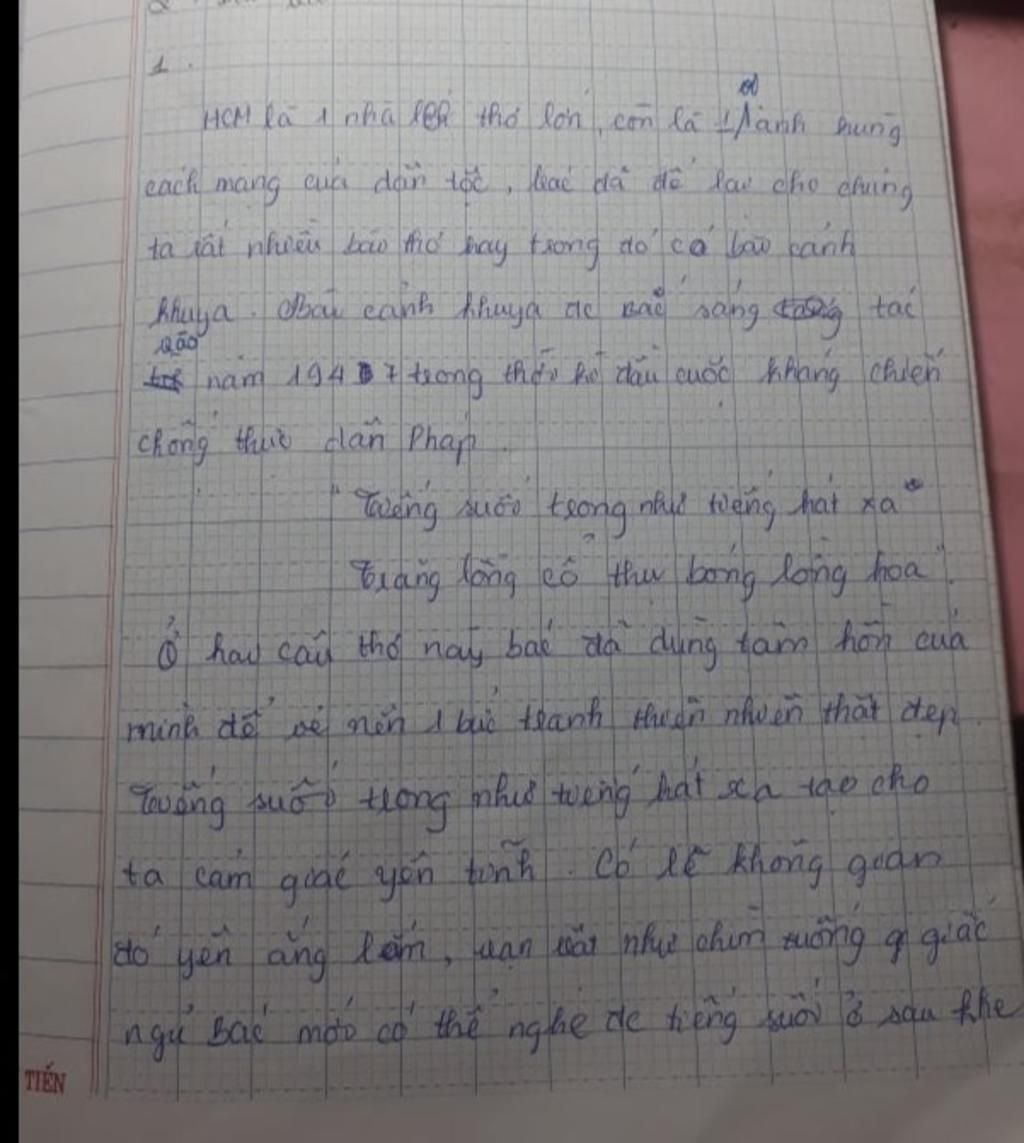 1.
HCM là 1 nhà thơ lớn, còn là 1 anh hùng
cách mạng của dân tộc, bác đã để lại cho chúng
ta rất nhiều bài thơ hay trong đó có bài cảnh
khuya. Bài cảnh khuya đc Bác sáng tác
vào năm 1947 trong thời kì đầu cuộc kháng chiến
chống thực dân Pháp.
"Tiếng suối trong như tiếng hát xa
Trăng lồng cổ thụ bóng lồng hoa".
Ở hai câu thơ này bác đã dùng tâm hồn của
mình để vẽ nên 1 bức tranh thiên nhiên thật đẹp.
Tiếng suối trong như tiếng hát xa tạo cho
ta cảm giác yên tĩnh. Có lẽ không gian
đó yên ắng lắm, vạn vật như chìm xuống giấc
ngủ Bác mới có thể nghe đc tiếng suối ở sau khe
TIẾN